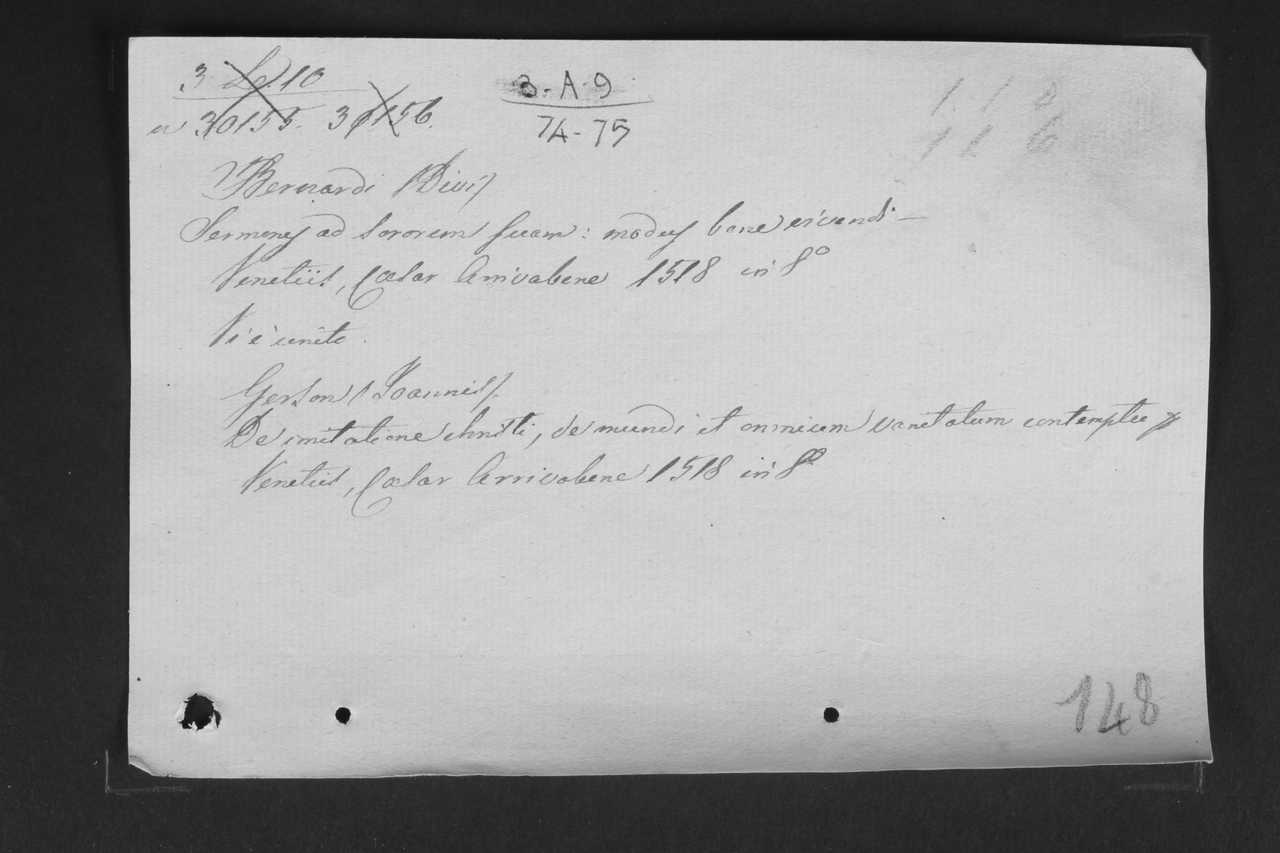 3 10
30155. 30156.
3-A-9
74-75
Bernardi (Divi)
Sermones ad sororem suam: modus bene vivendi—
Venetiis, Cæsar Arrivabene 1518 in 8º
Vi è unito.
Gerson (Joannis).
De imitatione christi, de mundi et omnium vanitatum contemptu
Venetiis, Cæsar Arrivabene 1518 in 8º
148